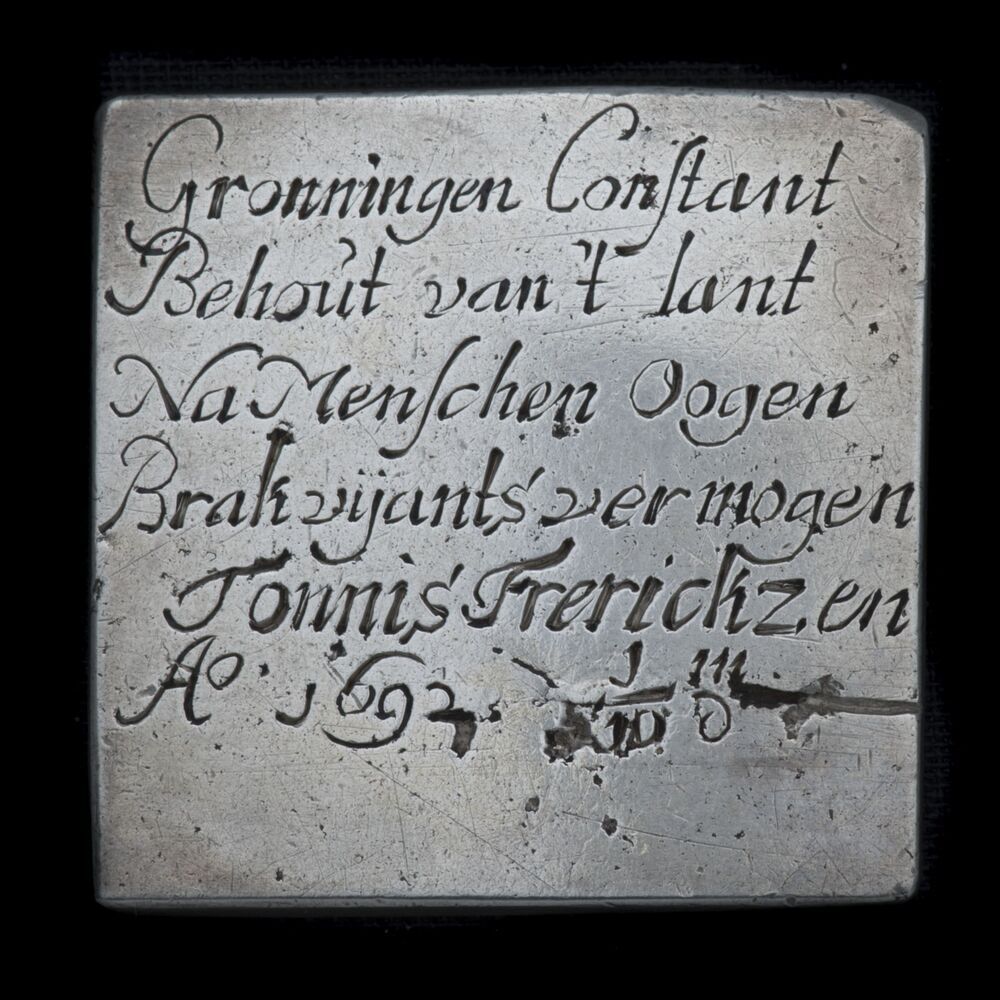 Gronningen Conſtant
Behout van't lant
Na Menſchen Oogen
Brak vijants vermogen
Tonnis Frerickzen
Ao. 1692